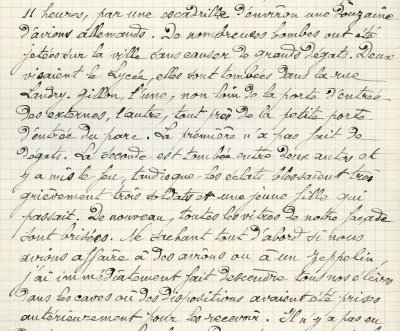 11 heures, par une escadrille d'environ une douzaine
d'avions allemands. De nombreuses bombes ont été
jetées sur la ville sans causer de grands dégats. Deux
visaient le Lycée, elles sont tombées dans la rue
Landry-Gillon, l'une, non loin de la porte d'entrée
des externes, l'autre, tout près de la petite porte
d'entrée du parc. La première n'a pas fait de
dégats. La seconde est tombée entre deux autos et
y a mis le feu, tandis que les éclats blessaient très
grièvement trois soldats et une jeune fille qui
passait. De nouveau, toutes les vitres de notre façade
sont brisées. Ne sachant tout d'abord si nous
avions affaire à des avions ou à un zeppelin,
j'ai immédiatement fait descendre tous nos élèves
dans les caves où des dispositions avaient été prises
antérieurement pour les recevoir. Il n'y a pas eu